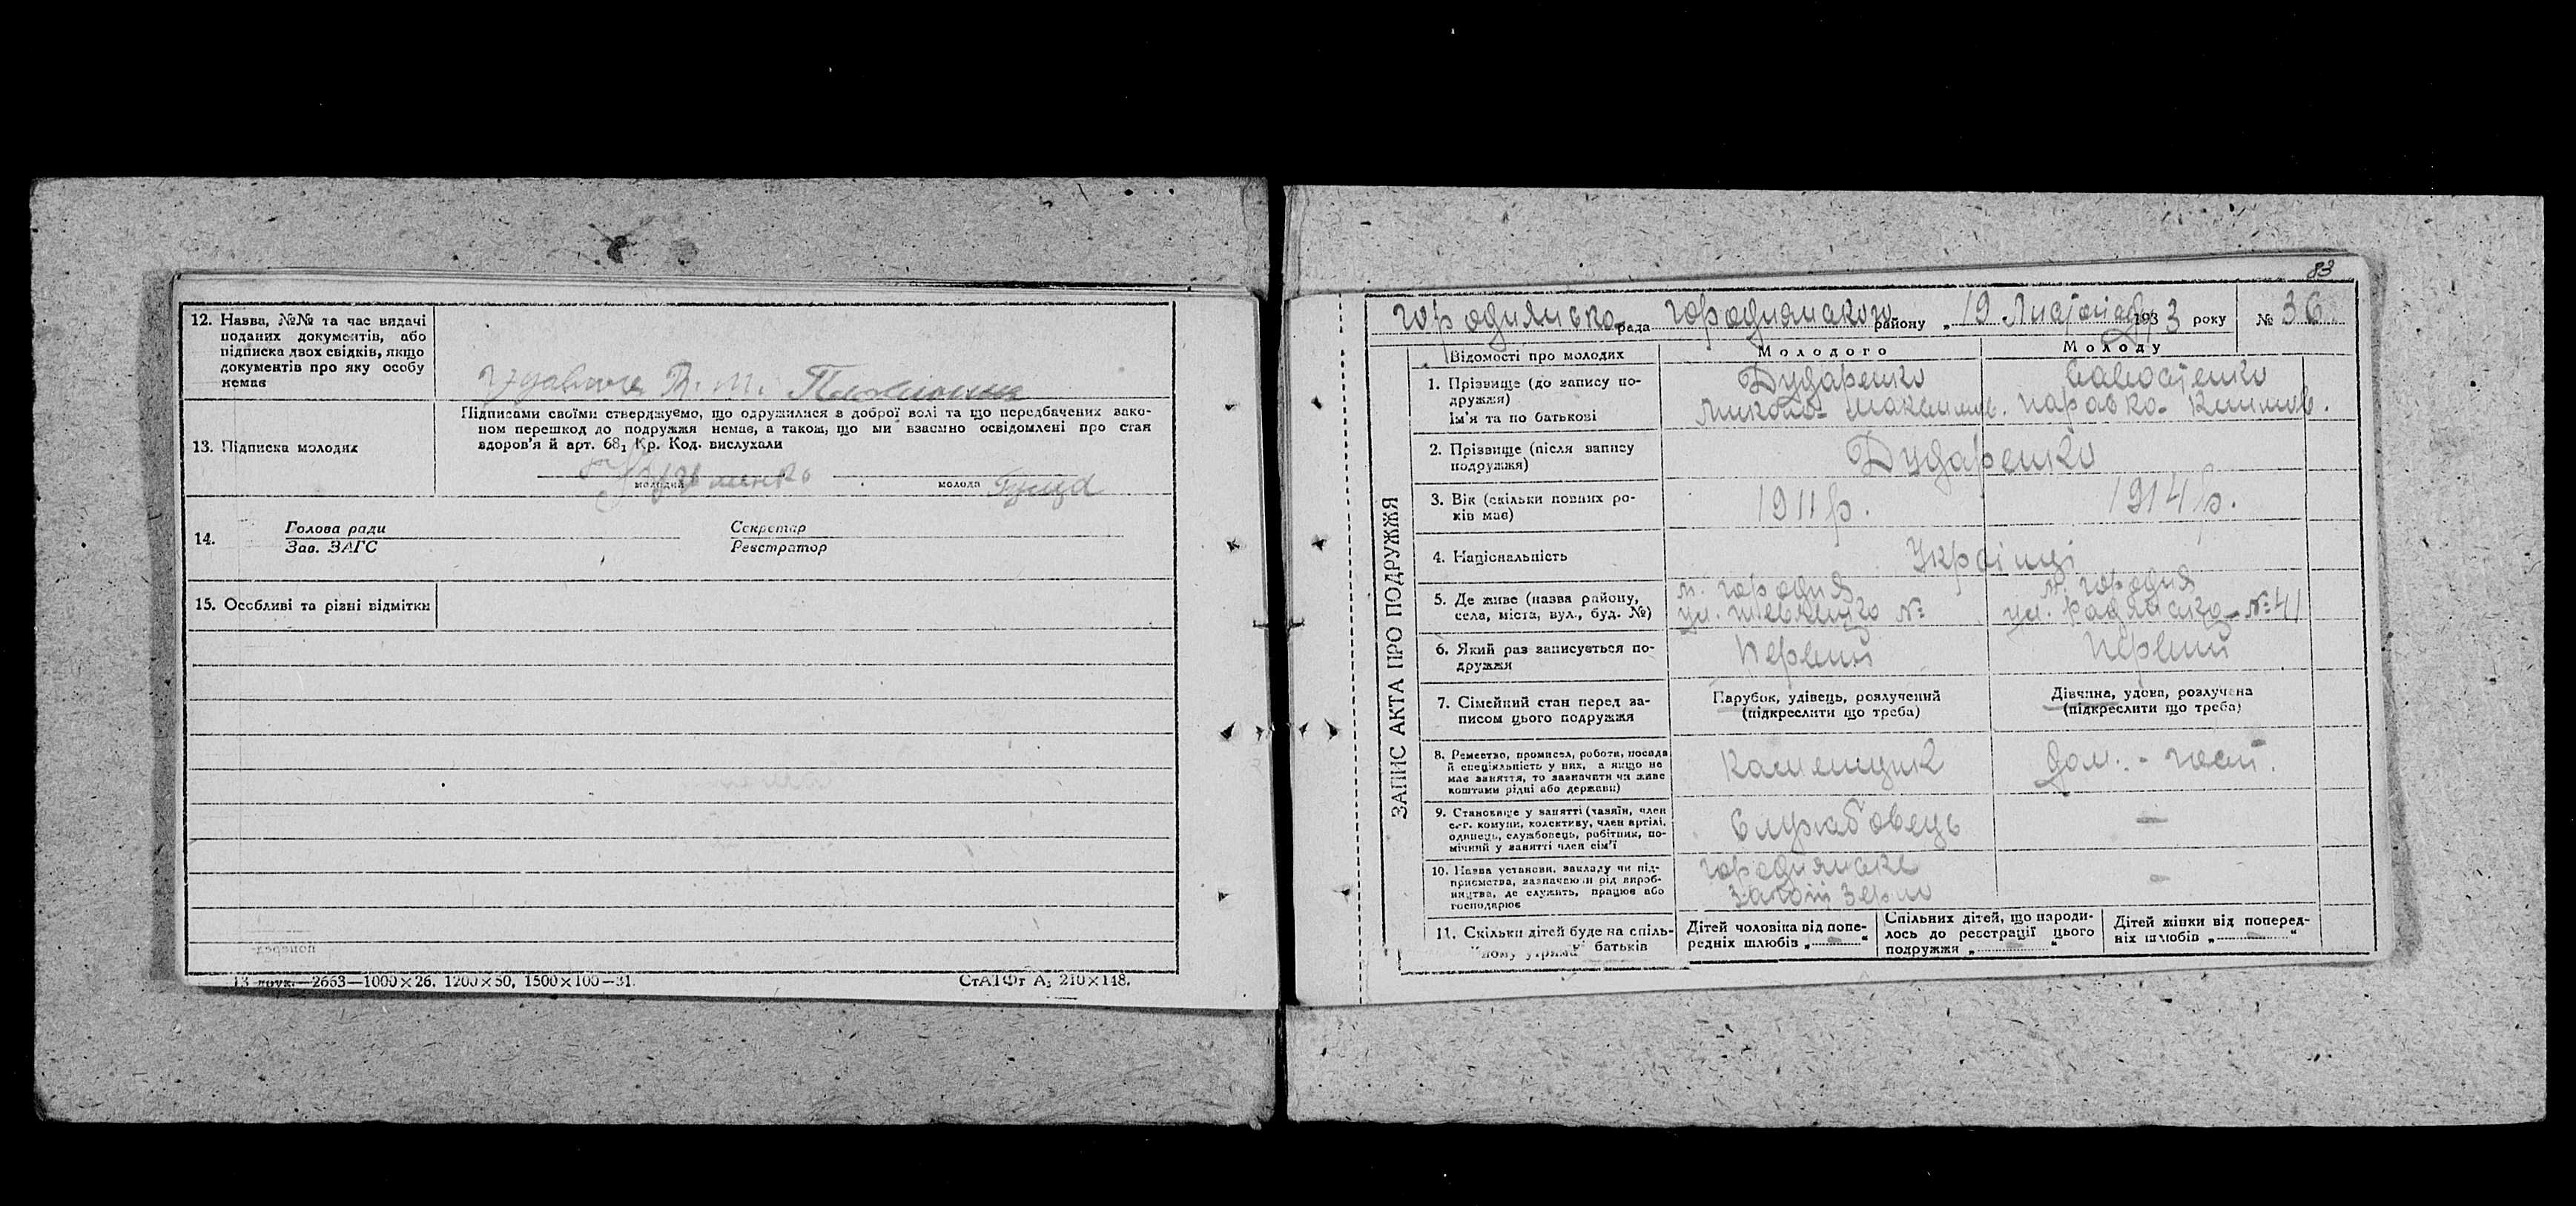 12. Назва, №№ та час видачі
поданих документів, або
підписка двох свідків, якщо
документів про яку особу
немає
13. Підписка молодих
Підписами своїми стверджуємо, що одружилися з доброї волі та що передбачених зако-
ном перешкод до подружжя немає, а також, що ми взаємно освідомлені про стан
здоров'я й арт. 68₁ Кр. Код. вислухали
молодий
молода
14.
Голова ради
Зав. ЗАГС
Секретар
Реєстратор
15. Особливі та різні відмітки
13 друк.—2663—1000×26, 1200×50, 1500×100—31.
СтАТФт А₅ 210×148.
83
Городнянська рада Городнянського району „ 19 Лютого 1933 року № 36.
ЗАПИС АКТА ПРО ПОДРУЖЖЯ
Відомості про молодих
Молодого
Молоду
1. Прізвище (до запису по-
дружжя)
Ім'я та по батькові
Дударенко
Микола Максимов.
Савостенко
Параска Климов.
2. Прізвище (після запису
подружжя)
Дударенко
3. Вік (скільки повних ро-
ків має)
1911 р.
1914 р.
4. Національність
Українці
5. Де живе (назва району,
села, міста, вул., буд. №)
м. Городня
ул. Шевченко №
м. Городня
ул. Радянська №41
6. Який раз записується по-
дружжя
Первий
Первий
7. Сімейний стан перед за-
писом цього подружжя
Парубок, удівець, розлучений
(підкреслити що треба)
Дівчина, удова, розлучена
(підкреслити що треба)
8. Ремество, промисел, робота, посада
й спеціяльність у них, а якщо не
має заняття, то зазначити чи живе
коштами рідні або держави)
Каменщик
Дом. - госп.
9. Становище у занятті (хазяїн, член
с.-г. комуни, колективу, член артілі,
одинець, службовець, робітник, по-
мічний у занятті член сім'ї
Службовець
—
10. Назва установи, закладу чи під-
приємства, зазначаючи рід вироб-
ництва, де служить, працює або
господарює
Городнянське
Заготзерно
—
11. Скільки дітей буде на спіль-
ному утрима батьків
Дітей чоловіка від попе-
редніх шлюбів „ — “
Спільних дітей, що народи-
лось до реєстрації цього
подружжя „ — “
Дітей жінки від поперед-
ніх шлюбів „ — “